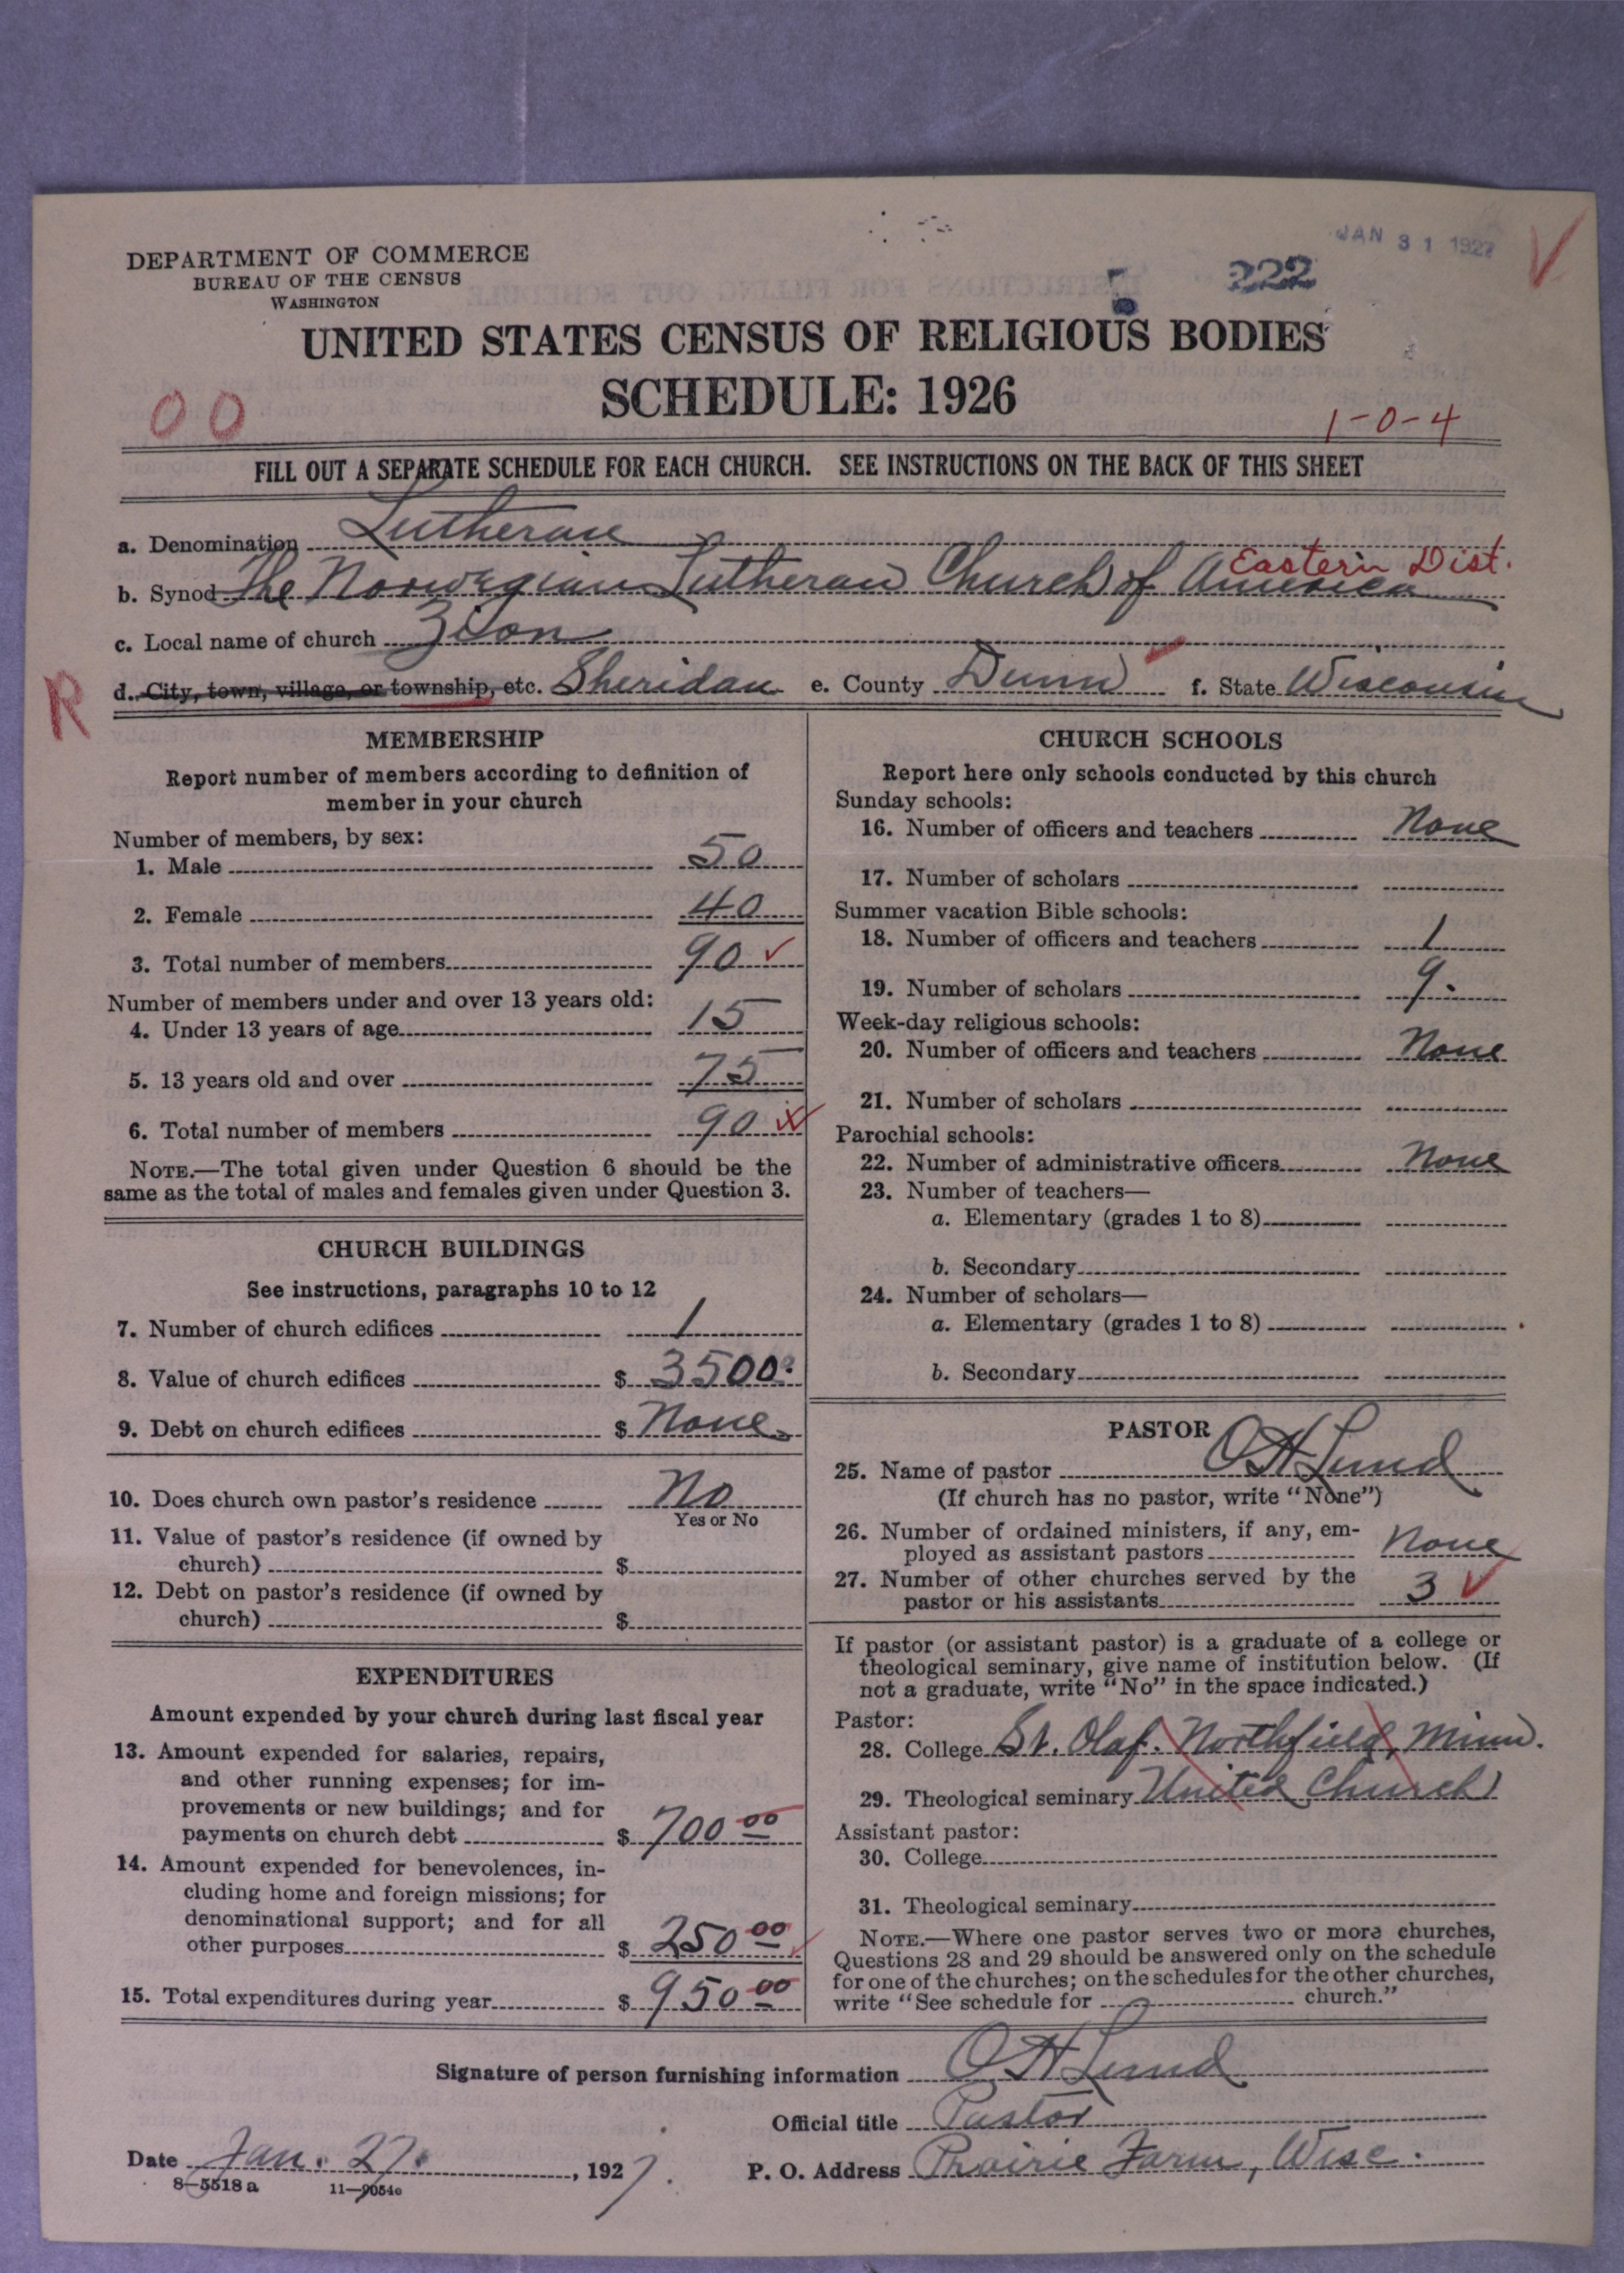 JAN 31 1927
222
DEPARTMENT OF COMMERCE
BUREAU OF THE CENSUS
WASHINGTON
UNITED STATES CENSUS OF RELIGIOUS BODIES
SCHEDULE: 1926
00
1-0-4
FILL OUT A SEPARATE SCHEDULE FOR EACH CHURCH. SEE INSTRUCTIONS ON THE BACK OF THIS SHEET
a. Denomination Lutheran
Eastern Dist.
b. Synod The Norwegian Lutheran Church of America
c. Local name of church Zion
R
d. City, town, village, or township, etc. Sheridan e. County Dunn f. State Wisconsin
MEMBERSHIP
Report number of members according to definition of
member in your church
Number of members, by sex:
1. Male 50
2. Female 40
3. Total number of members 90
Number of members under and over 13 years old:
4. Under 13 years of age 15
5. 13 years old and over 75
6. Total number of members 90
NOTE.—The total given under Question 6 should be the
same as the total of males and females given under Question 3.
CHURCH BUILDINGS
See instructions, paragraphs 10 to 12
7. Number of church edifices 1
8. Value of church edifices $ 3500
9. Debt on church edifices $ None
10. Does church own pastor's residence No
Yes or No
11. Value of pastor's residence (if owned by
church) $
12. Debt on pastor's residence (if owned by
church) $
EXPENDITURES
Amount expended by your church during last fiscal year
13. Amount expended for salaries, repairs,
and other running expenses; for im-
provements or new buildings; and for
payments on church debt $ 700 00
14. Amount expended for benevolences, in-
cluding home and foreign missions; for
denominational support; and for all
other purposes $ 250 00
15. Total expenditures during year $ 950 00
CHURCH SCHOOLS
Report here only schools conducted by this church
Sunday schools:
16. Number of officers and teachers None
17. Number of scholars
Summer vacation Bible schools:
18. Number of officers and teachers 1
19. Number of scholars 9.
Week-day religious schools:
20. Number of officers and teachers None
21. Number of scholars
Parochial schools:
22. Number of administrative officers None
23. Number of teachers—
a. Elementary (grades 1 to 8)
b. Secondary
24. Number of scholars—
a. Elementary (grades 1 to 8)
b. Secondary
PASTOR
25. Name of pastor O H Lund
(If church has no pastor, write "None")
26. Number of ordained ministers, if any, em-
ployed as assistant pastors None
27. Number of other churches served by the
pastor or his assistants 3
If pastor (or assistant pastor) is a graduate of a college or
theological seminary, give name of institution below. (If
not a graduate, write "No" in the space indicated.)
Pastor:
28. College St. Olaf. Northfield, Minn.
29. Theological seminary United Church
Assistant pastor:
30. College
31. Theological seminary
NOTE.—Where one pastor serves two or more churches,
Questions 28 and 29 should be answered only on the schedule
for one of the churches; on the schedules for the other churches,
write "See schedule for church."
Signature of person furnishing information O H Lund
Official title Pastor
Date Jan. 27. , 1927.
P. O. Address Prairie Farm, Wisc.
8—5518 a 11—9054e